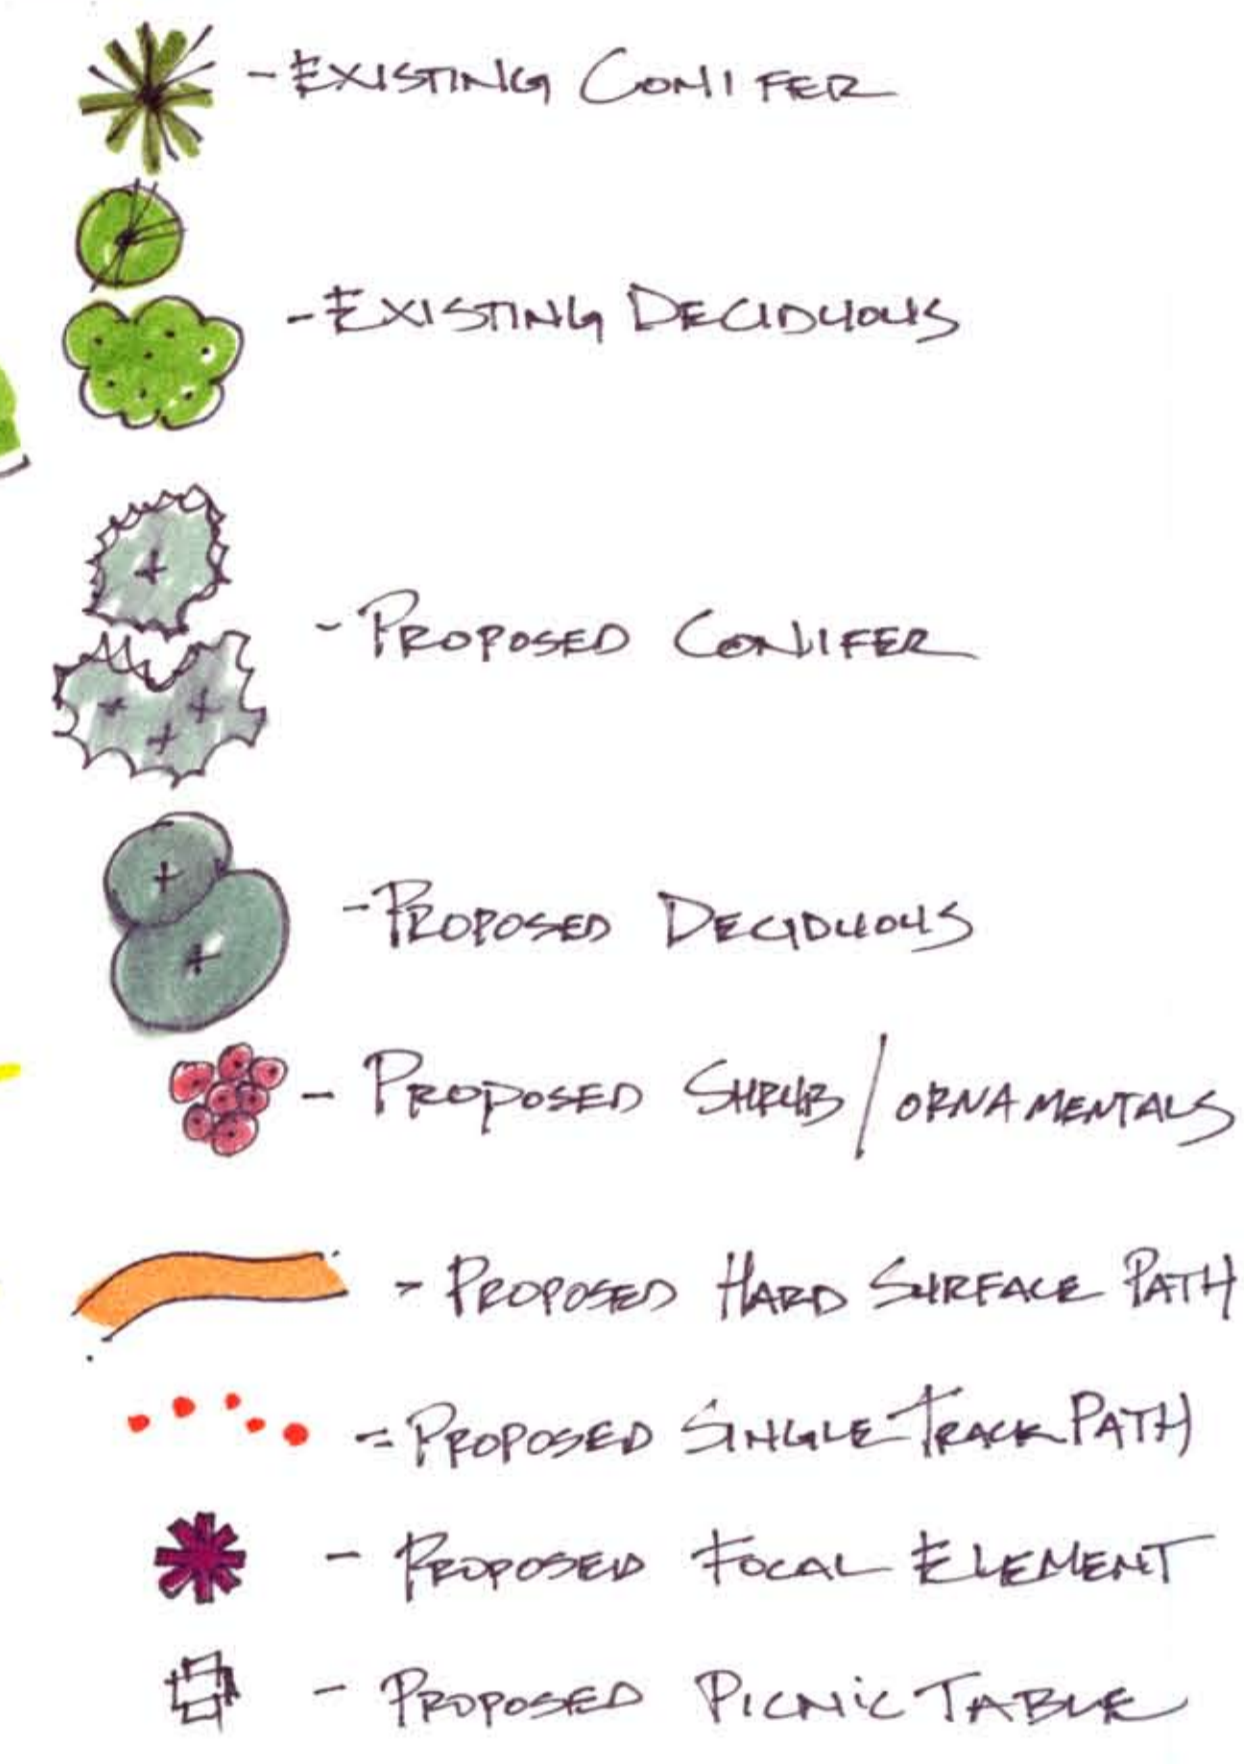 - EXISTING CONIFER
- EXISTING DECIDUOUS
- PROPOSED CONIFER
- PROPOSED DECIDUOUS
- PROPOSED SHRUB / ORNAMENTALS
- PROPOSED HARD SURFACE PATH
= PROPOSED SINGLE TRACK PATH
- PROPOSED FOCAL ELEMENT
- PROPOSED PICNIC TABLE